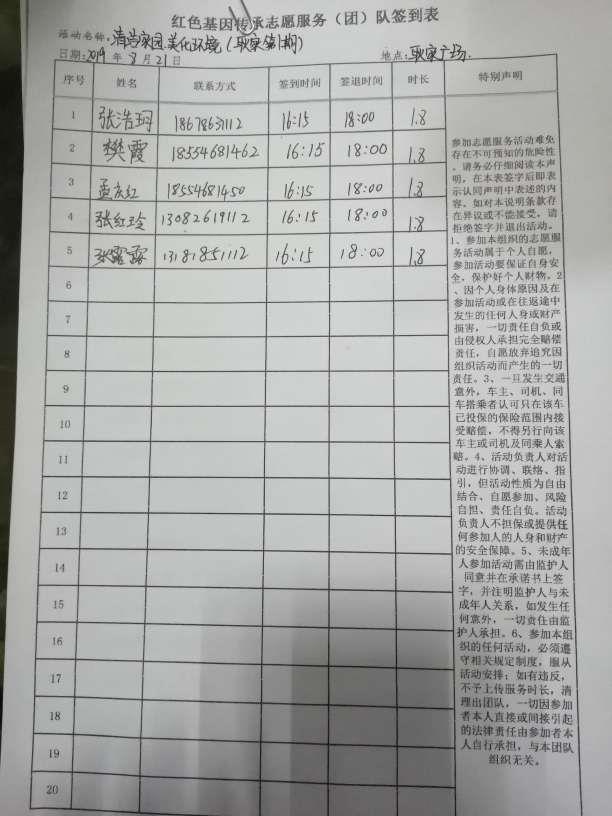 红色基因传承志愿服务（团）队签到表
活动名称：清洁家园.美化环境（耿家第1期）
日期：2019 年 8 月 21 日 地点：耿家广场.
序号 姓名 联系方式 签到时间 签退时间 时长 特别声明
1 张浩珂 18678631112 16:15 18:00 1.8
2 樊霞 18554681462 16:15 18:00 1.8
3 孟庆红 18554681450 16:15 18:00 1.8
4 张红玲 13082619112 16:15 18:00 1.8
5 张露露 13181851112 16:15 18:00 1.8
6
7
8
9
10
11
12
13
14
15
16
17
18
19
20
参加志愿服务活动难免
存在不可预知的危险性
，请务必仔细阅读本声
明，在本表签字后即表
示认同声明中表述的内
容。如对本说明条款存
在异议或不能接受，请
拒绝签字并退出活动。
1、参加本组织的志愿服
务活动属于个人自愿，
参加活动要保证自身安
全，保护好个人财物。2
、因个人身体原因及在
参加活动或在往返途中
发生的任何人身或财产
损害，一切责任自负或
由侵权人承担完全赔偿
责任，自愿放弃追究因
组织活动而产生的一切
责任。3、一旦发生交通
意外，车主、司机、同
车搭乘者认可只在该车
已投保的保险范围内接
受赔偿，不得另行向该
车主或司机及同乘人索
赔。4、活动负责人对活
动进行协调、联络、指
引，但活动性质为自由
结合、自愿参加、风险
自担、责任自负。活动
负责人不担保或提供任
何参加人的人身和财产
的安全保障。5、未成年
人参加活动需由监护人
同意并在承诺书上签
字，并注明监护人与未
成年人关系，如发生任
何意外，一切责任由监
护人承担。6、参加本组
织的任何活动，必须遵
守相关规定制度，服从
活动安排；如有违反，
不予上传服务时长，清
理出团队，一切因参加
者本人直接或间接引起
的法律责任由参加者本
人自行承担，与本团队
组织无关。